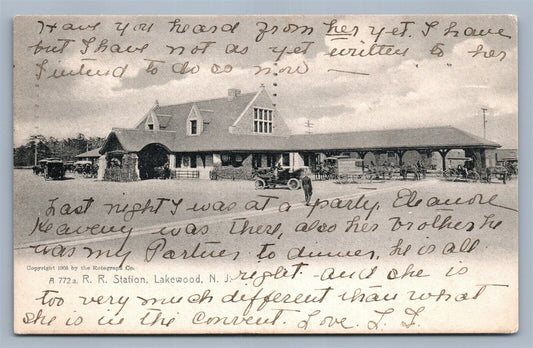 Have you heard from her yet. I have
but I have not as yet written to her
I intend to do so now —
Last night I was at a party. Eleanore
Heaveny was there, also her brother he
was my Partner to dinner, he is all
Copyright 1905 by the Rotograph Co.
A 772 a. R. R. Station, Lakewood, N. J. right - and she is
too very much different than what
she is in the convent. Love.